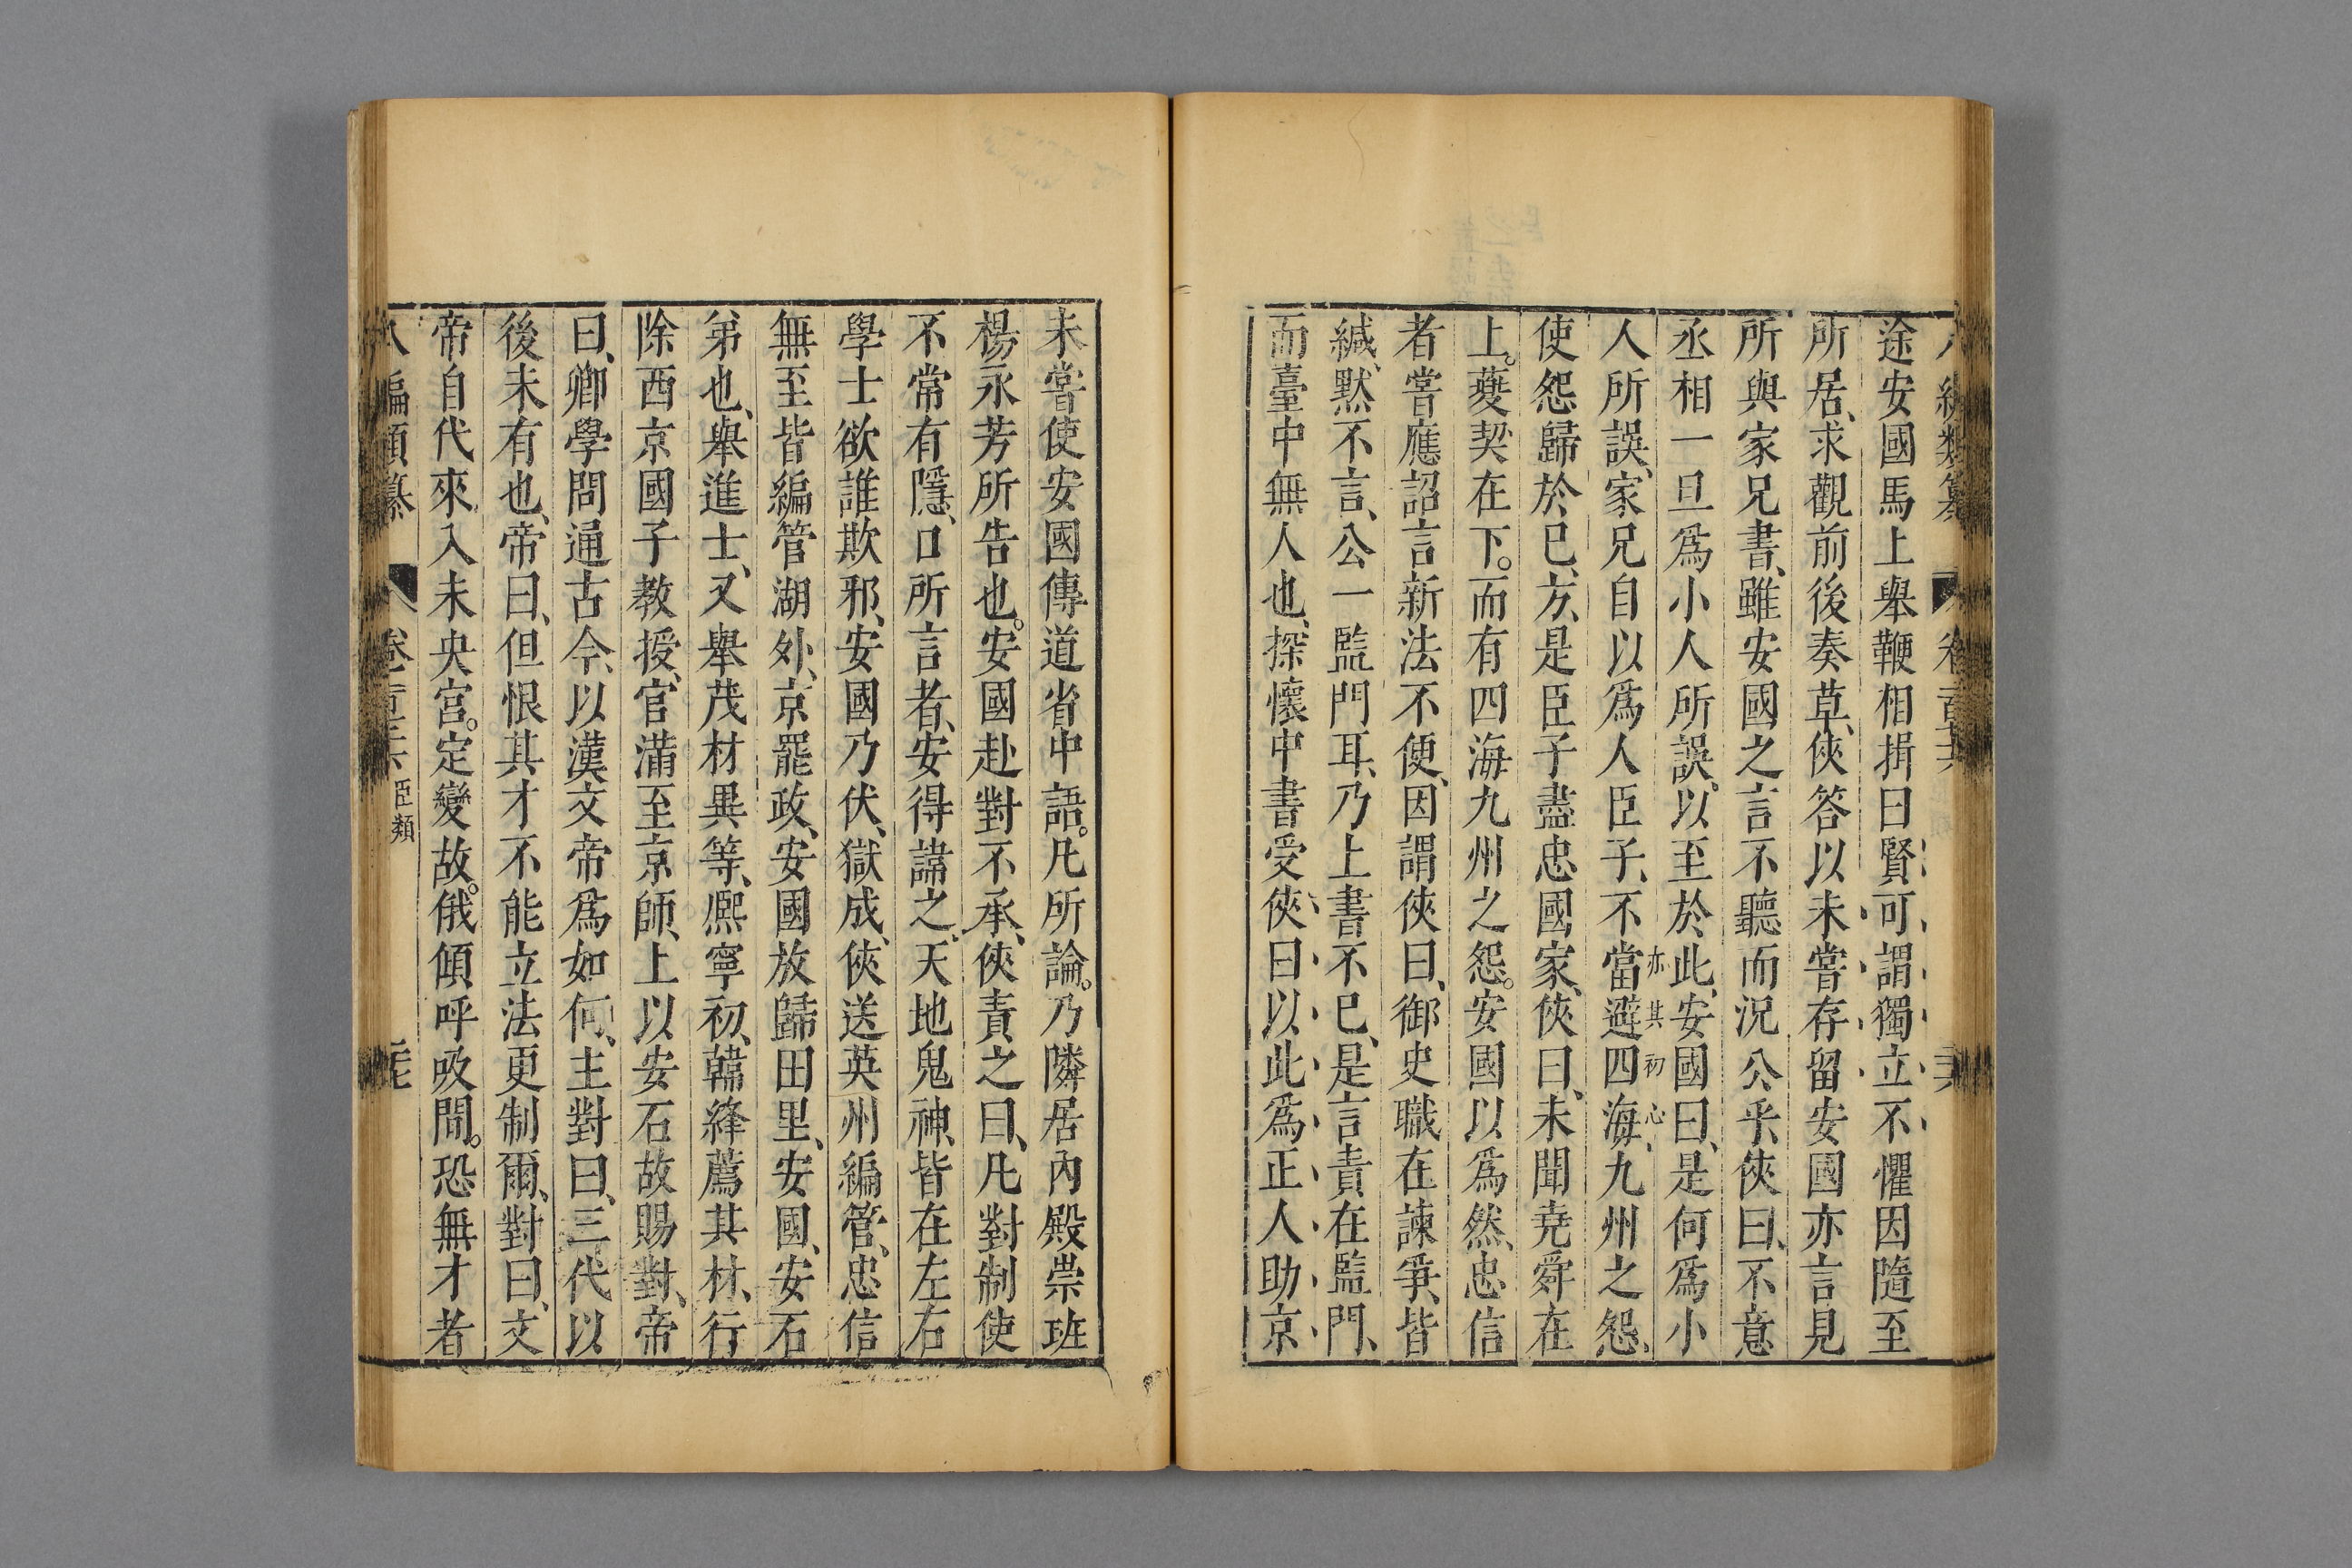 途安國馬上舉鞭相揖曰賢可謂獨立不懼因隨至
所居、求觀前後奏草、俠答以未嘗存留安國亦言見
所與家兄書、雖安國之言不聽而況公乎、俠曰、不意
丞相一旦爲小人所誤。以至於此、安國曰、是何爲小
亦其初心
人所誤、家兄自以爲人臣子、不當避四海、九州之怨、
使怨歸於已、方、是臣子盡忠國家、俠曰、未聞堯舜在
上。夔契在下。而有四海九州之怨。安國以爲然、忠信
者嘗應詔言新法不便、因謂俠曰、御史職在諫爭、皆
緘、默不言、公一監門耳、乃上書不已、是言責在監門、
而臺中無人也、探懷中書受俠曰以此爲正人助京
未嘗使安國傳道省中語。凡所論。乃隣居內殿崇班
楊永芳所告也。安國赴對不承、俠責之曰、凡對制使
不常有隱、口所言者、安得諱之、天地鬼神、皆在左右
學士欲誰欺邪、安國乃伏、獄成、俠送英州編管、忠信
無至皆編管湖外、京罷政、安國放歸田里、安國、安石
弟也、舉進士、又舉茂材異等、熙寧初、韓絳薦其材、行
除西京國子教授、官滿至京師、上以安石故賜對、帝
曰、卿學問通古今、以漢文帝爲如何、主對曰、三代以
後未有也、帝曰、但恨其才不能立法更制爾、對曰、文
帝自代來入未央宮。定變故。俄傾呼吸間。恐無才者
八編類纂 卷 臣類